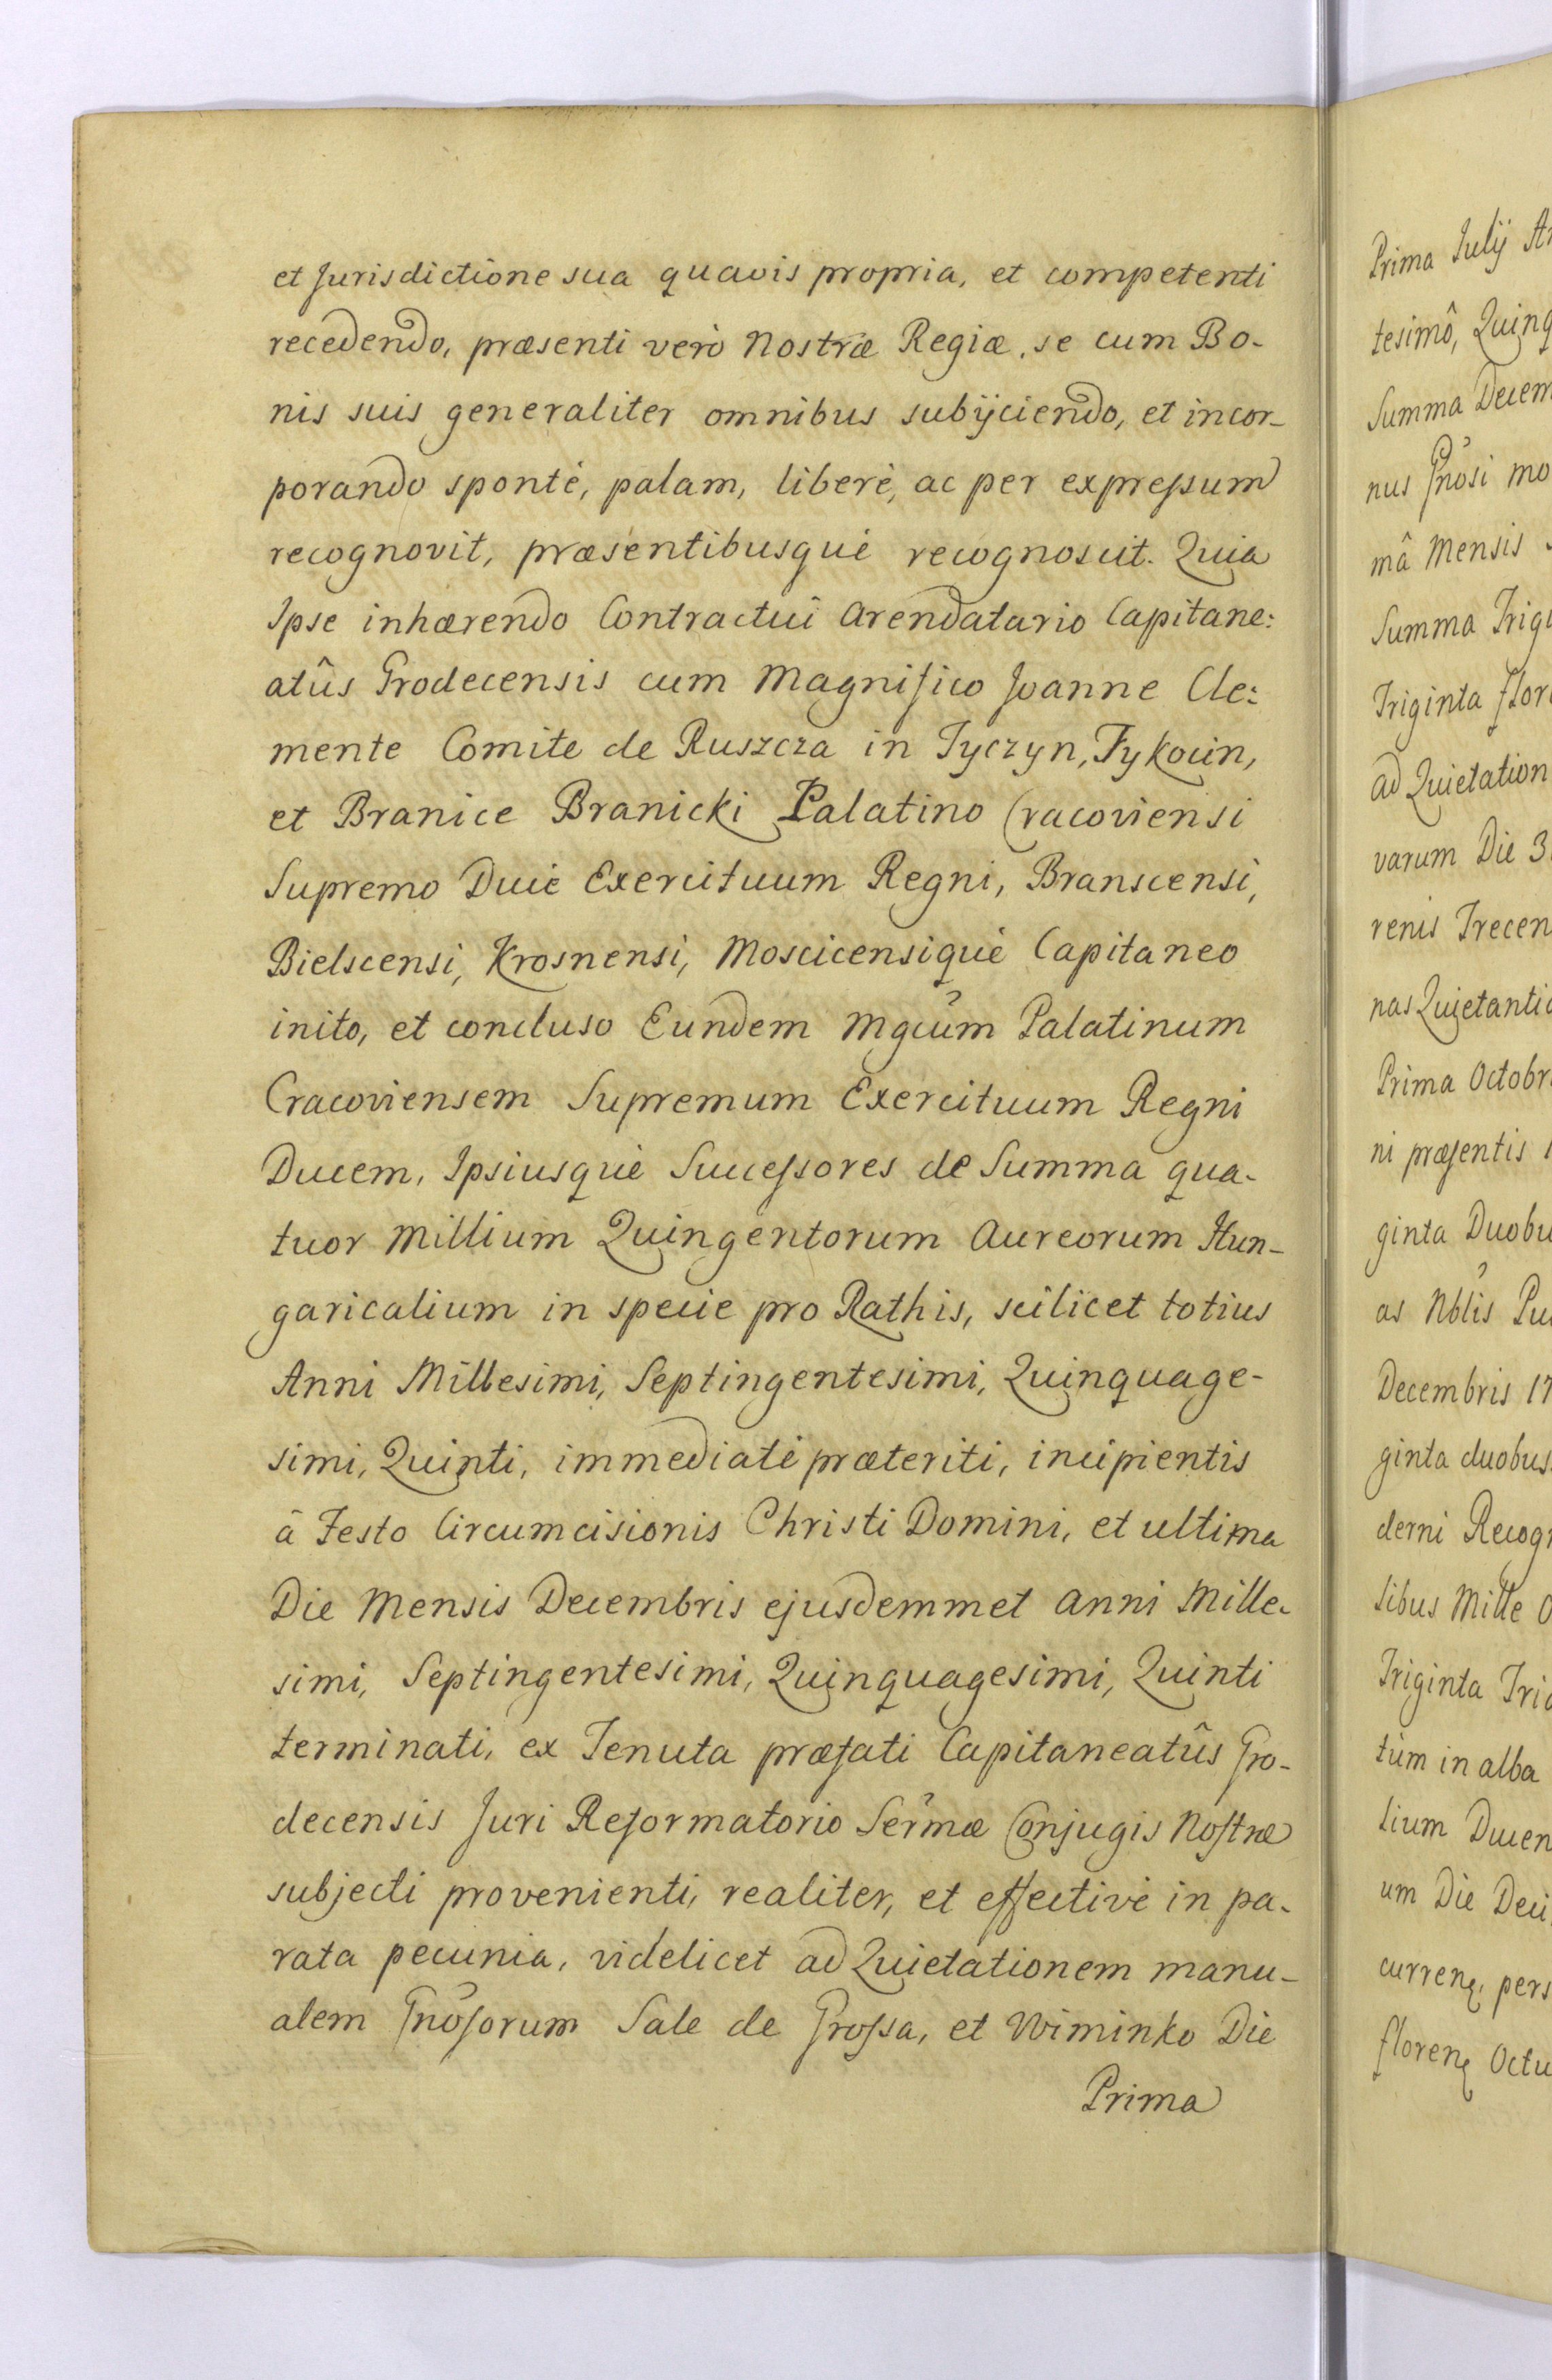 et Jurisdictione sua quavis propria, et competenti
recedendo, præsenti verò Nostræ Regiæ, se cum Bo-
nis suis generaliter omnibus subijciendo, et incor-
porando spontè, palam, liberè, ac per expressum
recognovit, præsentibusquè recognoscit. Quia
Ipse inhærendo Contractui Arendatario Capitane:
atûs Grodecensis cum Magnifico Joanne Cle:
mente Comite de Ruszcza in Tyczyn, Tykocin,
et Branice Branicki Palatino Cracoviensi
Supremo Duce Exercituum Regni, Branscensi,
Bielscensi, Krosnensi, Moscicensiquè Capitaneo
inito, et concluso Eundem Mgcum Palatinum
Cracoviensem Supremum Exercituum Regni
Ducem, Ipsiusquè Successores de Summa qua-
tuor Millium Quingentorum Aureorum Hun-
garicalium in specie pro Rathis, scilicet totius
Anni Millesimi, Septingentesimi, Quinquage-
simi, Quinti, immediatè præteriti, incipientis
â Festo Circumcisionis Christi Domini, et ultima
Die Mensis Decembris ejusdemmet Anni Mille-
simi, Septingentesimi, Quinquagesimi, Quinti
terminati, ex Tenuta præfati Capitaneatûs Gro-
decensis Juri Reformatorio Sermæ Conjugis Nostræ
subjecti provenienti, realiter, et effectivè in pa-
rata pecunia, videlicet ad Quietationem manu-
alem Gnosorum Sale de Grossa, et Wiminko Die
Prima
Prima Julij An
tesimô, Quinq
Summa Decem
nus Gnosi mo
mâ Mensis
Summa Trigi
Triginta flor
ad Quietation
varum Die 3
renis Trecen
nas Quietantia
Prima Octobr
ni præsentis 1
ginta Duobu
as Nblis Pu
Decembris 17
ginta duobus
derni Recogn
libus Mille O
Triginta Tri
tùm in alba
lium Ducen
um Die Deci
curren, pers
floren Octu